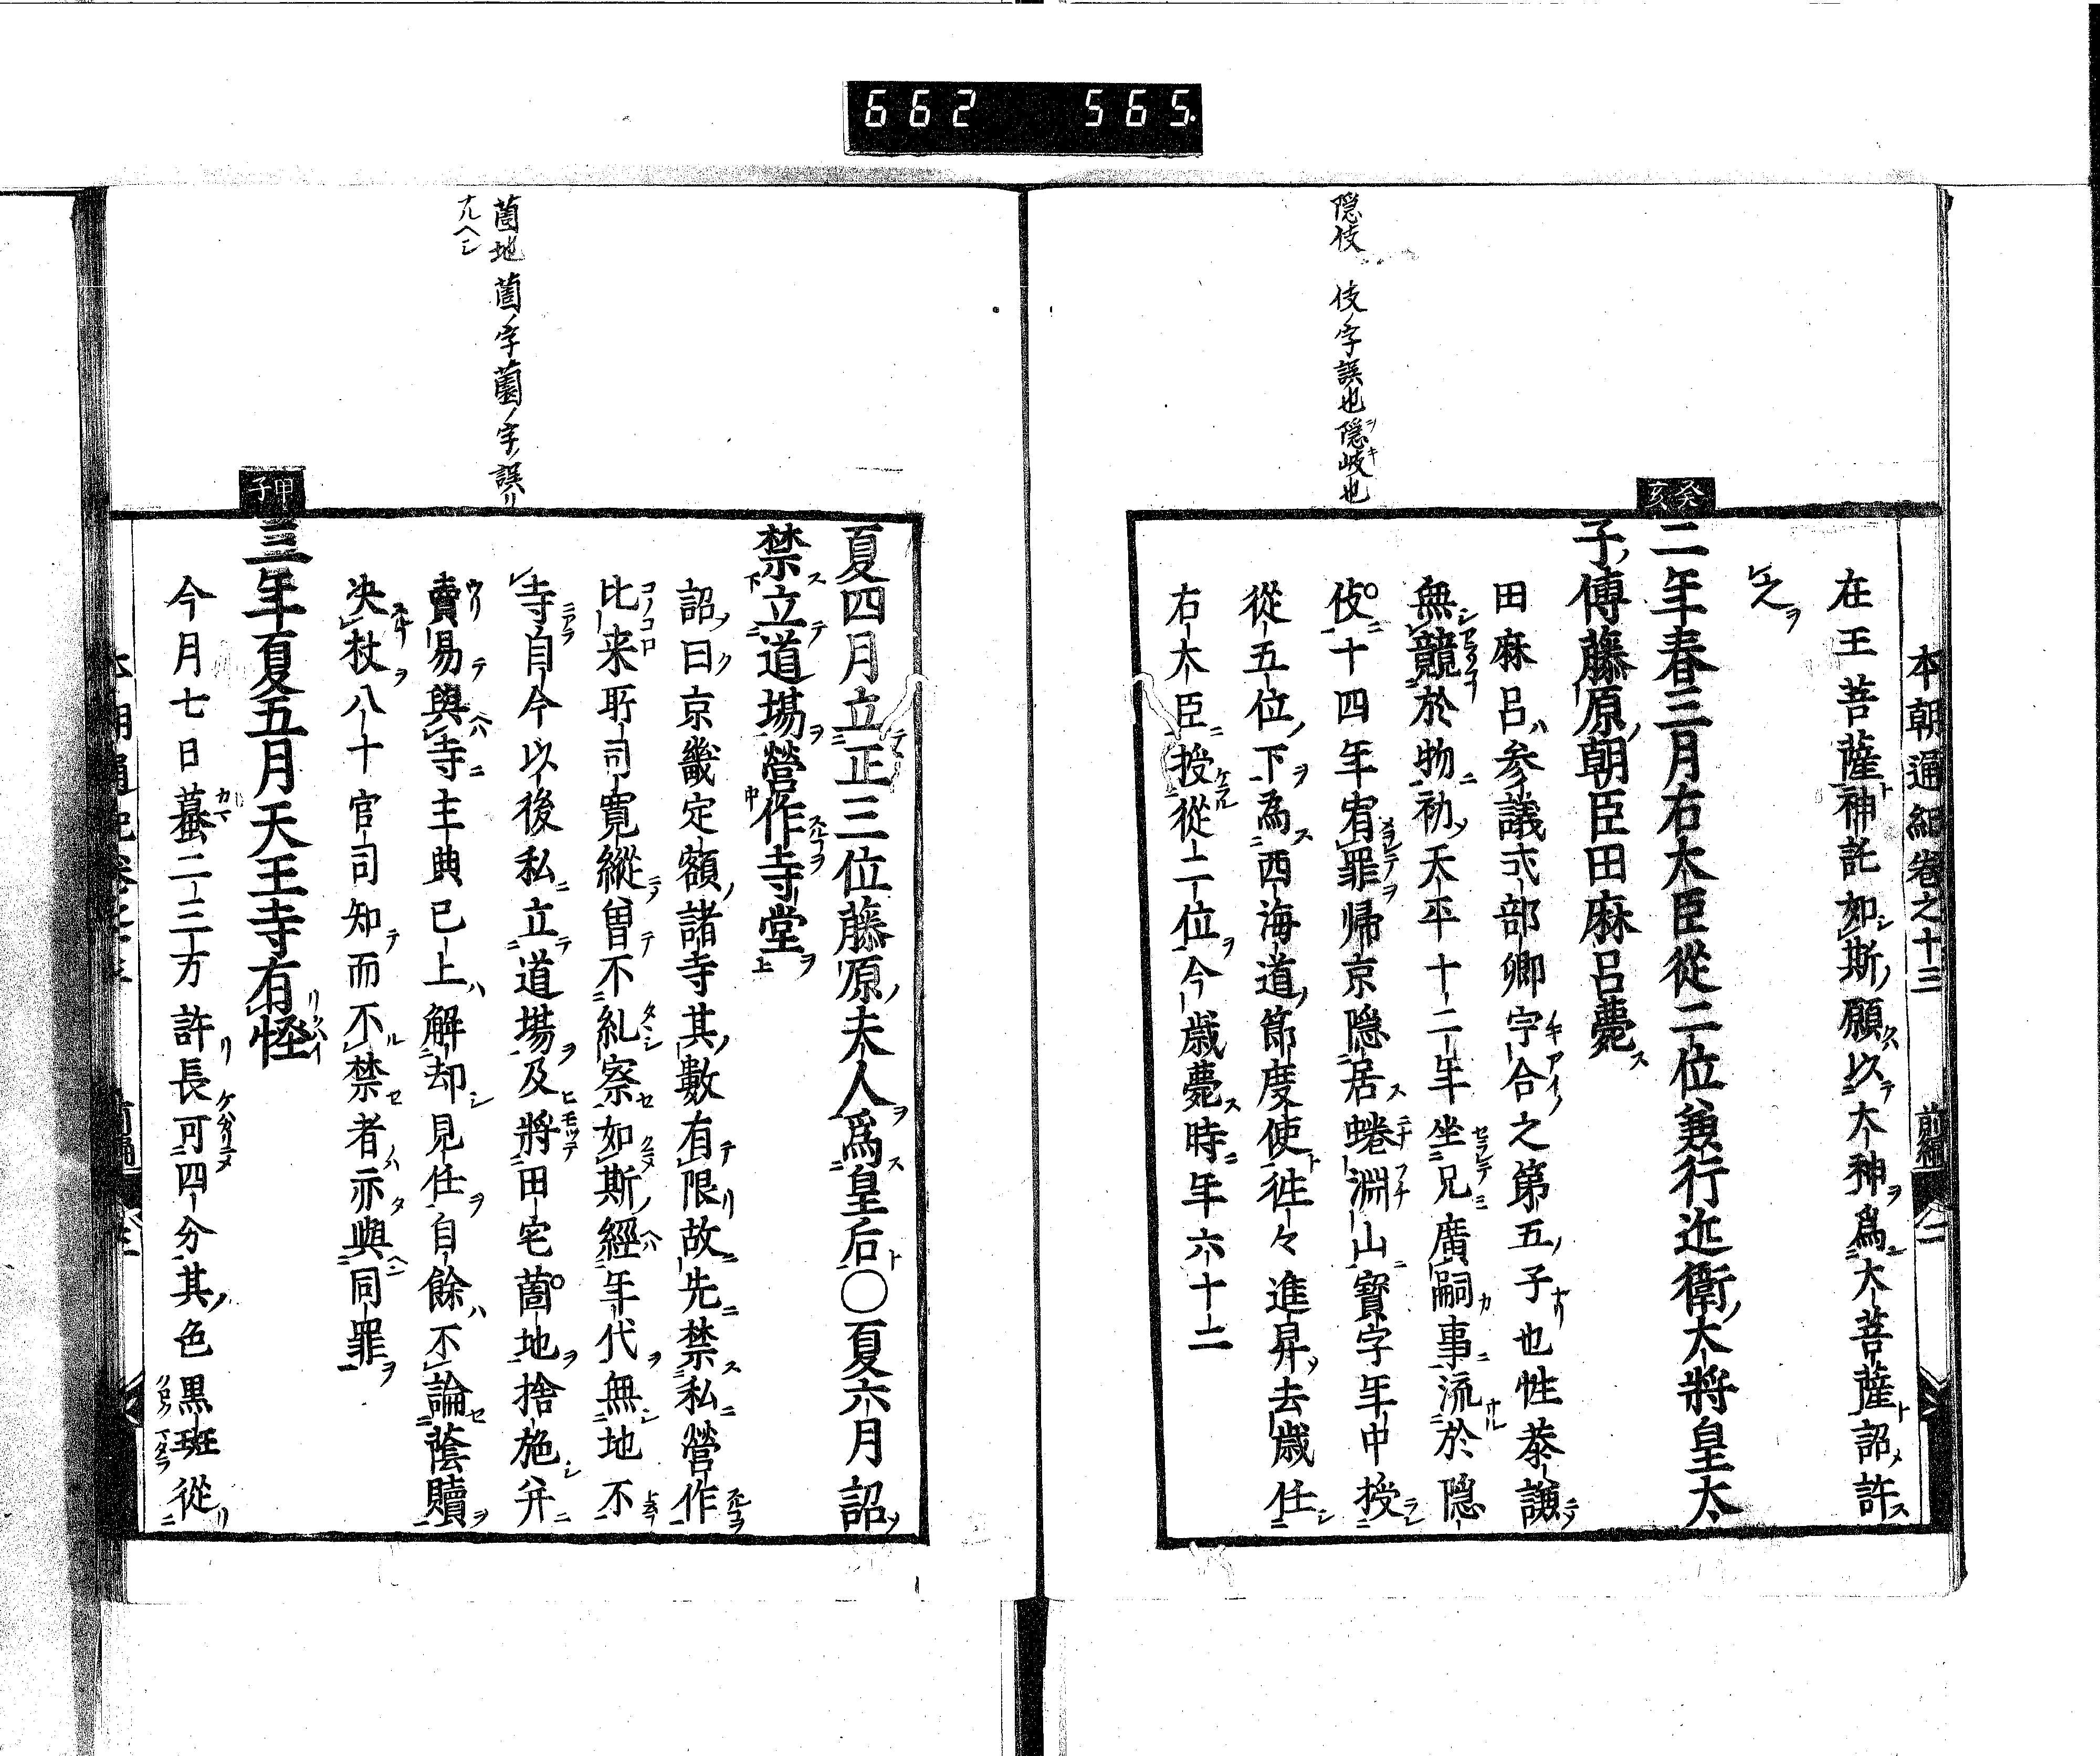 662 565.
隠伎 伎ノ字誤也隠岐也
癸亥
本朝通紀卷之十三 前編 二
在王菩薩神託如斯願以大神爲大菩薩詔許
之
二年春三月右大臣從二位兼行近衛大將皇太
子傅藤原朝臣田麻呂薨
田麻呂參議式部卿宇合之第五子也性恭謙
無競於物初天平十二年坐兄廣嗣事流於隠
伎十四年宥罪帰京隠居蜷淵山寶字年中授
從五位下為西海道節度使徃々進昇去歳任
右大臣授從二位今歳薨時年六十二
薗地 薗ノ字薗ノ字誤リ
ナルヘシ
甲子
夏四月立正三位藤原夫人爲皇后〇夏六月詔
禁立道場營作寺堂
詔曰京畿定額諸寺其數有限故先禁私營作
比来所司寛縱曽不糺察如斯經年代無地不
寺自今以後私立道場及將田宅薗地捨施并
賣易與寺主典已上解却見任自餘不論蔭贖
决杖八十官司知而不禁者亦與同罪
三年夏五月天王寺有怪
今月七日蟇二三万許長可四分其色黒斑從